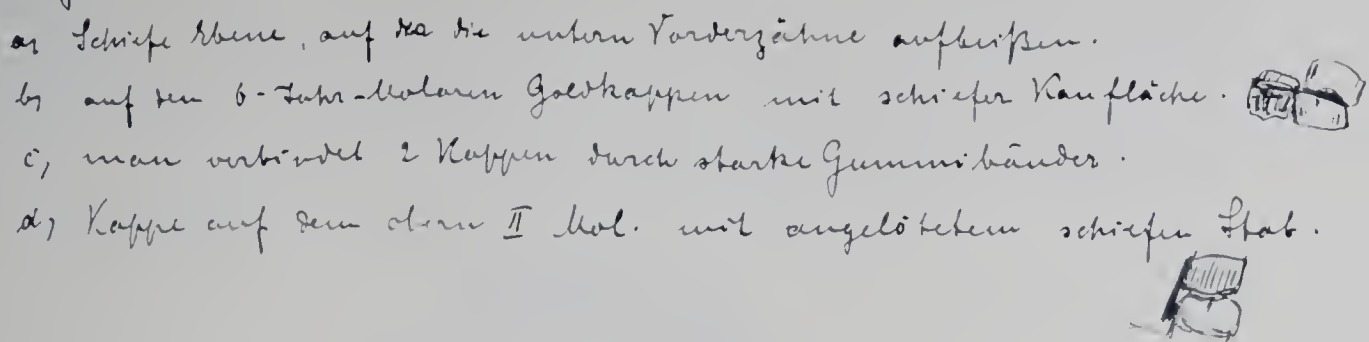 a, Schiefe Ebene, auf die die untern Vorderzähne aufbeißen.
b, auf den 6-Jahr-Molaren Goldkappen mit schiefer Kaufläche.
c, man verbindet 2 Kappen durch starke Gummibänder.
d, Kappe auf dem obern II Mol. mit angelötetem schiefen Stab.